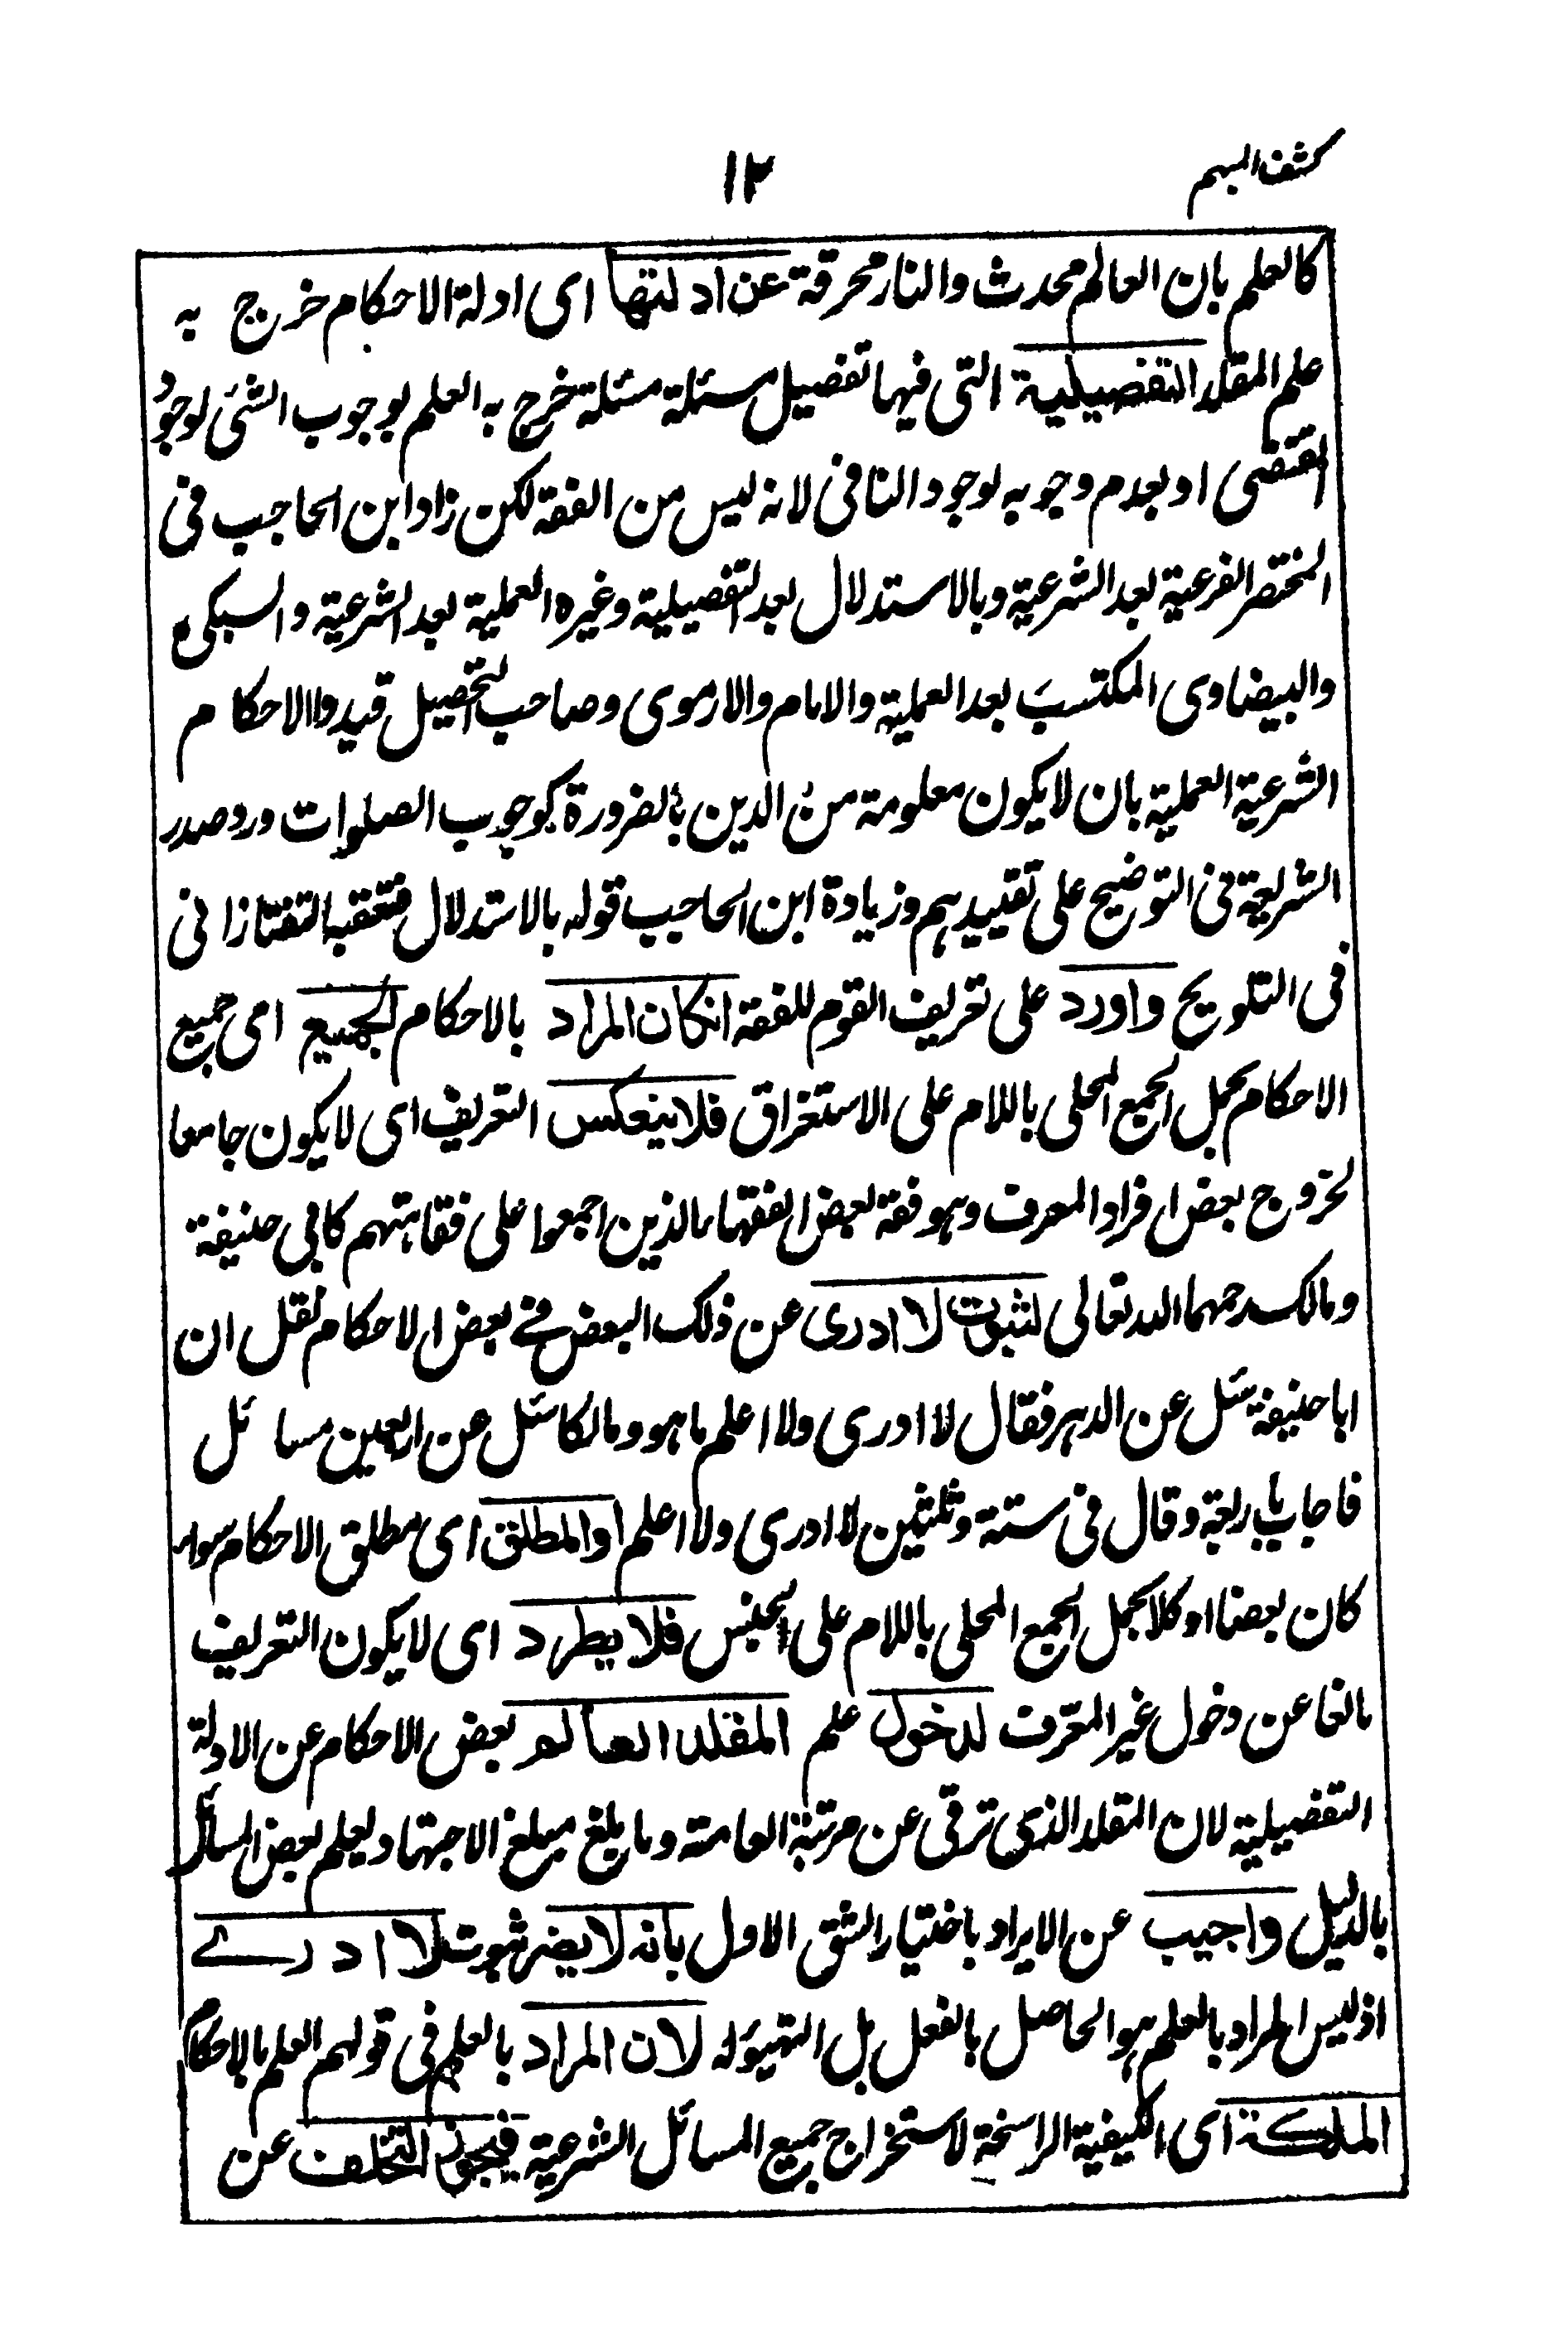 كشف المبهم
١٢
كالعلم بان العالم محدث والنار محرقة عن ادلتها اى ادلة الاحكام خرج به
علم المقلد التفصيلية التى فيها تفصيل مسئلة مسئلة خرج به العلم بوجوب الشئ لوجود
المقتضى او بعدم وجوبه لوجود النافى لانه ليس من الفقه لكن زاد ابن الحاجب فى
المختصر الفرعية بعد الشرعية وبالاستدلال بعد التفصيلية وغيره العملية بعد الشرعية والسبكى
والبيضاوى المكتسب بعد العملية والامام والارموى وصاحب التحصيل قيدوا الاحكام
الشرعية العملية بان لا يكون معلومة من الدين بالضرورة كوجوب الصلوات ورد صدر
الشريعة فى التوضيح على تقييدهم وزيادة ابن الحاجب قوله بالاستدلال فتعقبه التفتازانى
فى التلويح واورد على تعريف القوم للفقه انكان المراد بالاحكام الجميع اى جميع
الاحكام بحمل الجمع المحلى باللام على الاستغراق فلا ينعكس التعريف اى لا يكون جامعا
لخروج بعض افراد المعرف وهو فقه بعض الفقهاء الذين اجمعوا على فقاهتهم كابى حنيفة
ومالك رحمهما الله تعالى لثبوت لا ادرى عن ذلك البعض فے بعض الاحكام نقل ان
ابا حنيفة سئل عن الدهر فقال لا ادرى ولا اعلم ما هو ومالكا سئل عن اربعين مسائل
فاجاب باربعة وقال فى ستة وثلثين لا ادرى ولا اعلم او المطلق اى مطلق الاحكام سواء
كان بعضا او كلا بحمل الجمع المحلى باللام على الجنس فلا يطرد اى لا يكون التعريف
مانعا عن دخول غير المعرف لدخول علم المقلد العالم بعض الاحكام عن الادلة
التفصيلية لان المقلد الذى ترقى عن مرتبة العامة وما بلغ مبلغ الاجتهاد يعلم بعض المسائل
بالدليل واجيب عن الايراد باختيار الشق الاول بانه لا يضر ثبوت لا ادرے
اذ ليس المراد بالعلم هو الحاصل بالفعل بل التهيؤ له لان المراد بالعلم فى قولهم العلم بالاحكام
الملكة اى الكيفية الراسخة لاستخراج جميع المسائل الشرعية فيجوز التخلف عن